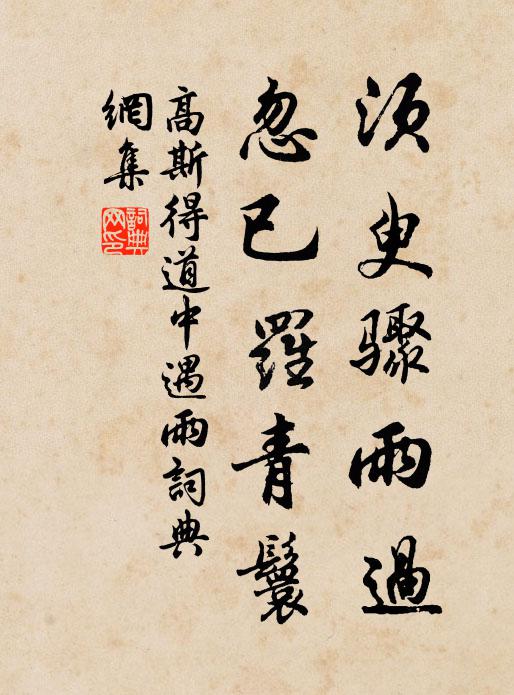 須臾驟雨過
忽已羅青鬟
高斯得道中遇雨詞典
網集
詞典
网印